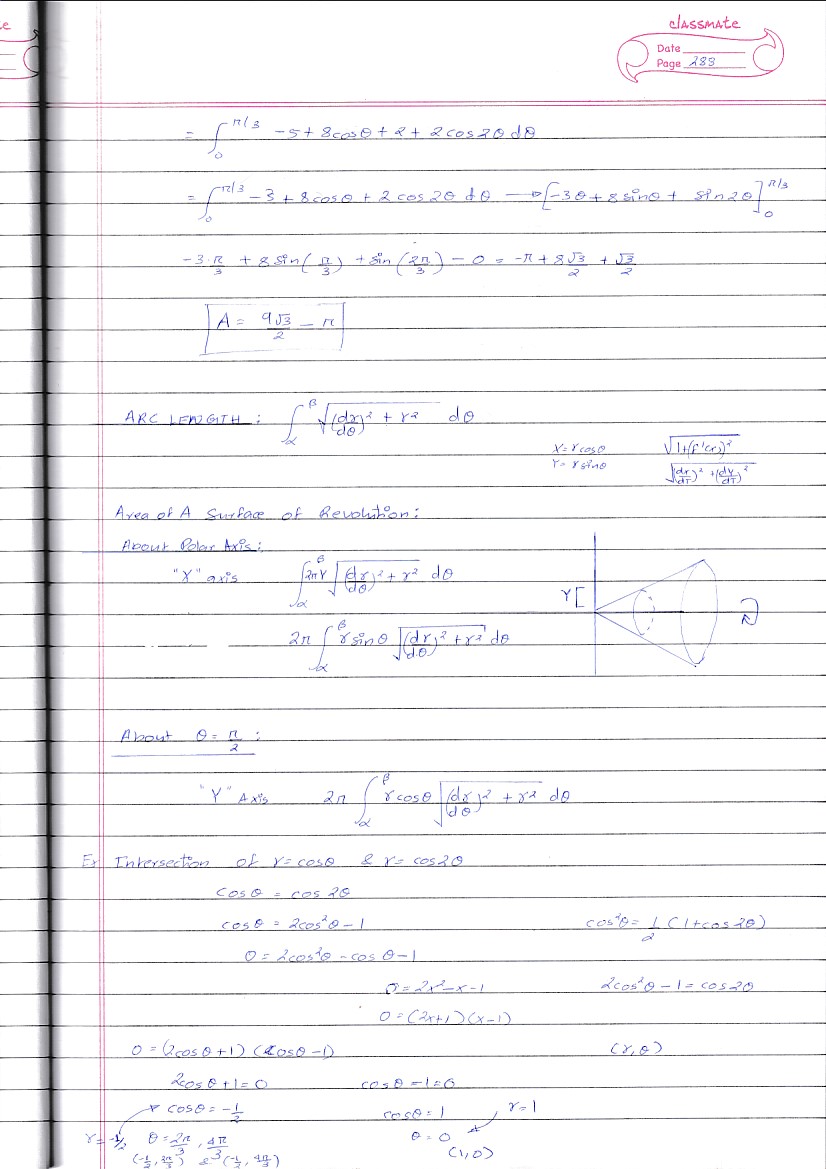 e
classmate
Date
Page 283
= ∫₀^{π/3} -5 + 8cosθ + 2 + 2cos2θ dθ
= ∫₀^{π/3} -3 + 8cosθ + 2cos2θ dθ → [-3θ + 8sinθ + sin2θ]₀^{π/3}
-3·π/3 + 8sin(π/3) + sin(2π/3) - 0 = -π + 8√3/2 + √3/2
A = 9√3/2 - π
ARC LENGTH : ∫_α^β √((dr/dθ)² + r²) dθ
X = rcosθ √(1+(f'(x))²)
Y = rsinθ √((dx/dT)² + (dy/dT)²)
Area of A Surface of Revolution:
About Polar Axis:
"X" axis ∫_α^β 2πY √((dr/dθ)² + r²) dθ
Y
2π ∫_α^β rsinθ √((dr/dθ)² + r²) dθ
About θ = π/2 :
"Y" Axis 2π ∫_α^β rcosθ √((dr/dθ)² + r²) dθ
Ex Intersection of r = cosθ & r = cos2θ
cosθ = cos2θ
cosθ = 2cos²θ - 1 cos²θ = 1/2 (1 + cos2θ)
0 = 2cos²θ - cosθ - 1
0 = 2x² - x - 1 2cos²θ - 1 = cos2θ
0 = (2x+1)(x-1)
0 = (2cosθ + 1)(cosθ - 1) (r, θ)
2cosθ + 1 = 0 cosθ - 1 = 0
cosθ = -1/2 cosθ = 1 r = 1
r = -1/2 θ = 2π/3, 4π/3 θ = 0
(-1/2, 2π/3) & (-1/2, 4π/3) (1, 0)